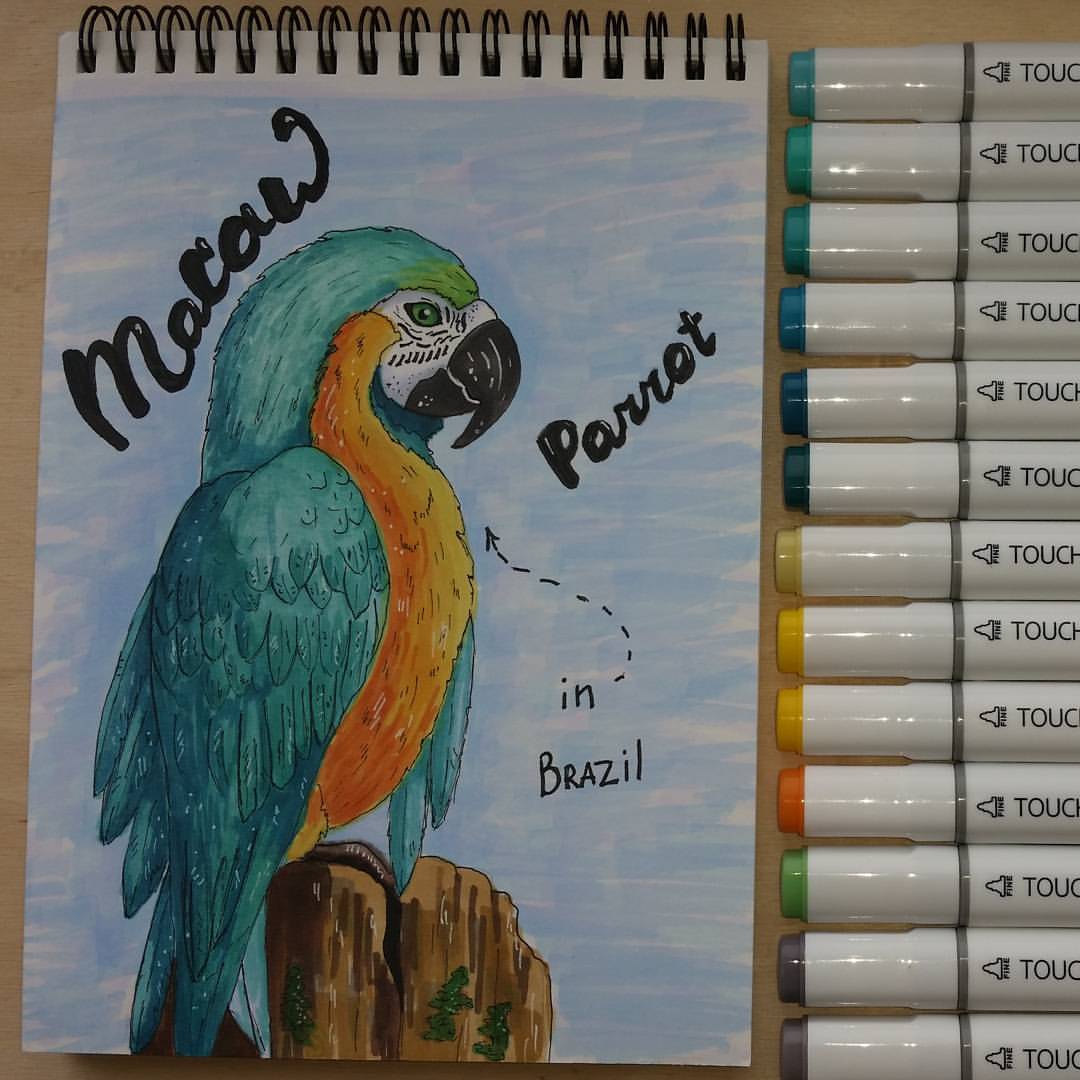 Macaw
Parrot
in
BRAZil
FINE TOUC
FINE TOUC
FINE TOUC
FINE TOUCH
FINE TOUCH
FINE TOUC
FINE TOUCH
FINE TOUCH
FINE TOUCH
FINE TOUCH
FINE TOUC
FINE TOUC
FINE TOUC